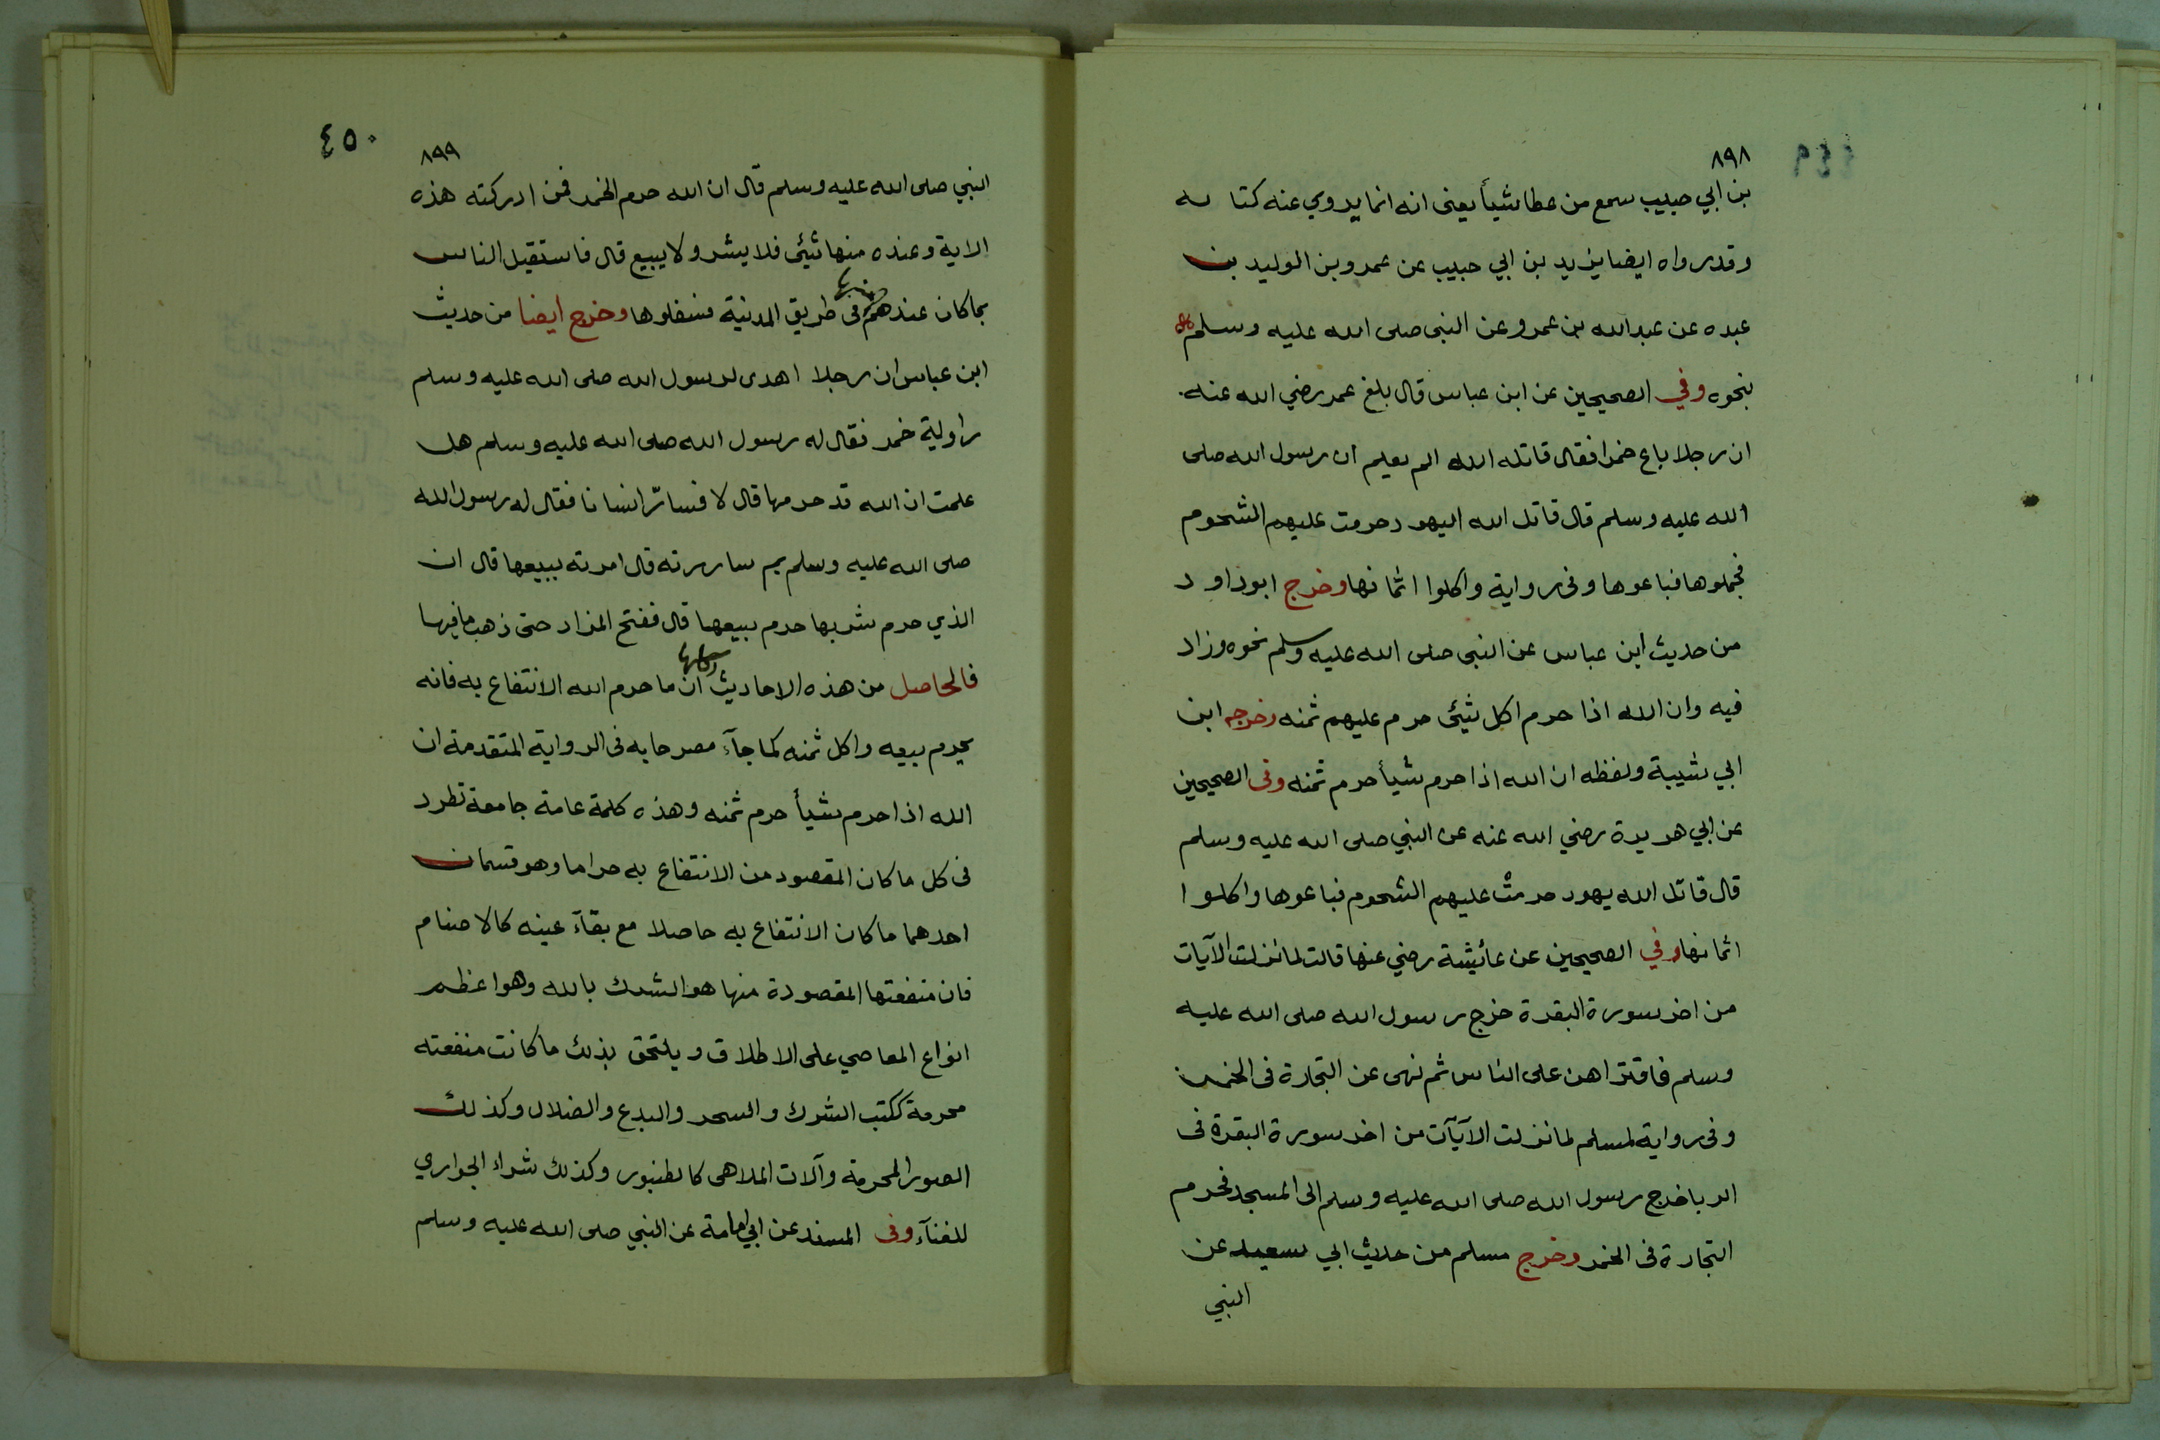 ٨٩٨
٤٤٩
بن ابي حبيب سمع من عطا شيأ يعنى انه انما يروي عنه كتا به
وقد رواه ايضا يزيد بن ابي حبيب عن عمرو بن الوليد بن
عبده عن عبدالله بن عمرو عن النبى صلى الله عليه وسلم
بنحوه وفي الصحيحين عن ابن عباس قال بلغ عمر رضي الله عنه
ان رجلا باع خمرا فقال قاتله الله الم يعلم ان رسول الله صلى
الله عليه وسلم قال قاتل الله اليهود حرمت عليهم الشحوم
فجملوها فباعوها وفى رواية واكلوا اثمانها وخرج ابوداود
من حديث ابن عباس عن النبى صلى الله عليه وسلم نحوه وزاد
فيه وان الله اذا حرم اكل شئى حرم عليهم ثمنه وخرجه ابن
ابي شيبة ولفظه ان الله اذا حرم شيأ حرم ثمنه وفى الصحيحين
عن ابي هريرة رضي الله عنه عن النبي صلى الله عليه وسلم
قال قاتل الله يهود حرمتْ عليهم الشحوم فباعوها واكلوا
اثمانها وفي الصحيحين عن عائيشة رضي عنها قالت لما نزلت الآيات
من اخر سورة البقرة خرج رسول الله صلى الله عليه
وسلم فاقتراهن على الناس ثم نهى عن التجارة فى الخمر
وفى رواية لمسلم لما نزلت الآيآت من اخر سورة البقرة فى
الربا خرج رسول الله صلى الله عليه وسلم الى المسجد فحرم
التجارة فى الخمر وخرج مسلم من حديث ابي سعيد عن
النبي
٨٩٩
٤٥٠
النبي صلى الله عليه وسلم قال ان الله حرم الخمر فمن ادركته هذه
الاية وعنده منها شئى فلا يشر ولا يبيع قال فاستقبل الناس
بما كان عندهم فى طريق المدنية فسفلوها وخرج ايضا من حديث
ابن عباس ان رجلا اهدى لرسول الله صلى الله عليه وسلم
راولية خمر فقال له رسول الله صلى الله عليه وسلم هل
علمت ان الله قد حرمها قال لا فسارّ انسانا فقال له رسول الله
صلى الله عليه وسلم بم ساررته قال امرته ببيعها قال ان
الذي حرم شربها حرم بيعها قال ففتح المزاد حتى ذهب ما فيها
فالحاصل من هذه الاحاديث كلها ان ما حرم الله الانتفاع به فانه
يحرم بيعه واكل ثمنه كما جآء مصرحا به فى الرواية المتقدمة ان
الله اذا حرم شيأ حرم ثمنه وهذه كلمة عامة جامعة تطرد
فى كل ما كان المقصود من الانتفاع به حراما وهو قسمان
احدهما ما كان الانتفاع به حاصلا مع بقآء عينه كالاصنام
فان منفعتها المقصودة منها هو الشرك بالله وهو اعظم
انواع المعاصي على الاطلاق ويلتحق بذلك ما كانت منفعته
محرمة ككتب الشرك والسحر والبدع والضلال وكذلك
الصور المحرمة وآلات الملاهى كالطنبور وكذلك شراء الجواري
للغنآء وفى المسند عن ابي امامة عن النبي صلى الله عليه وسلم